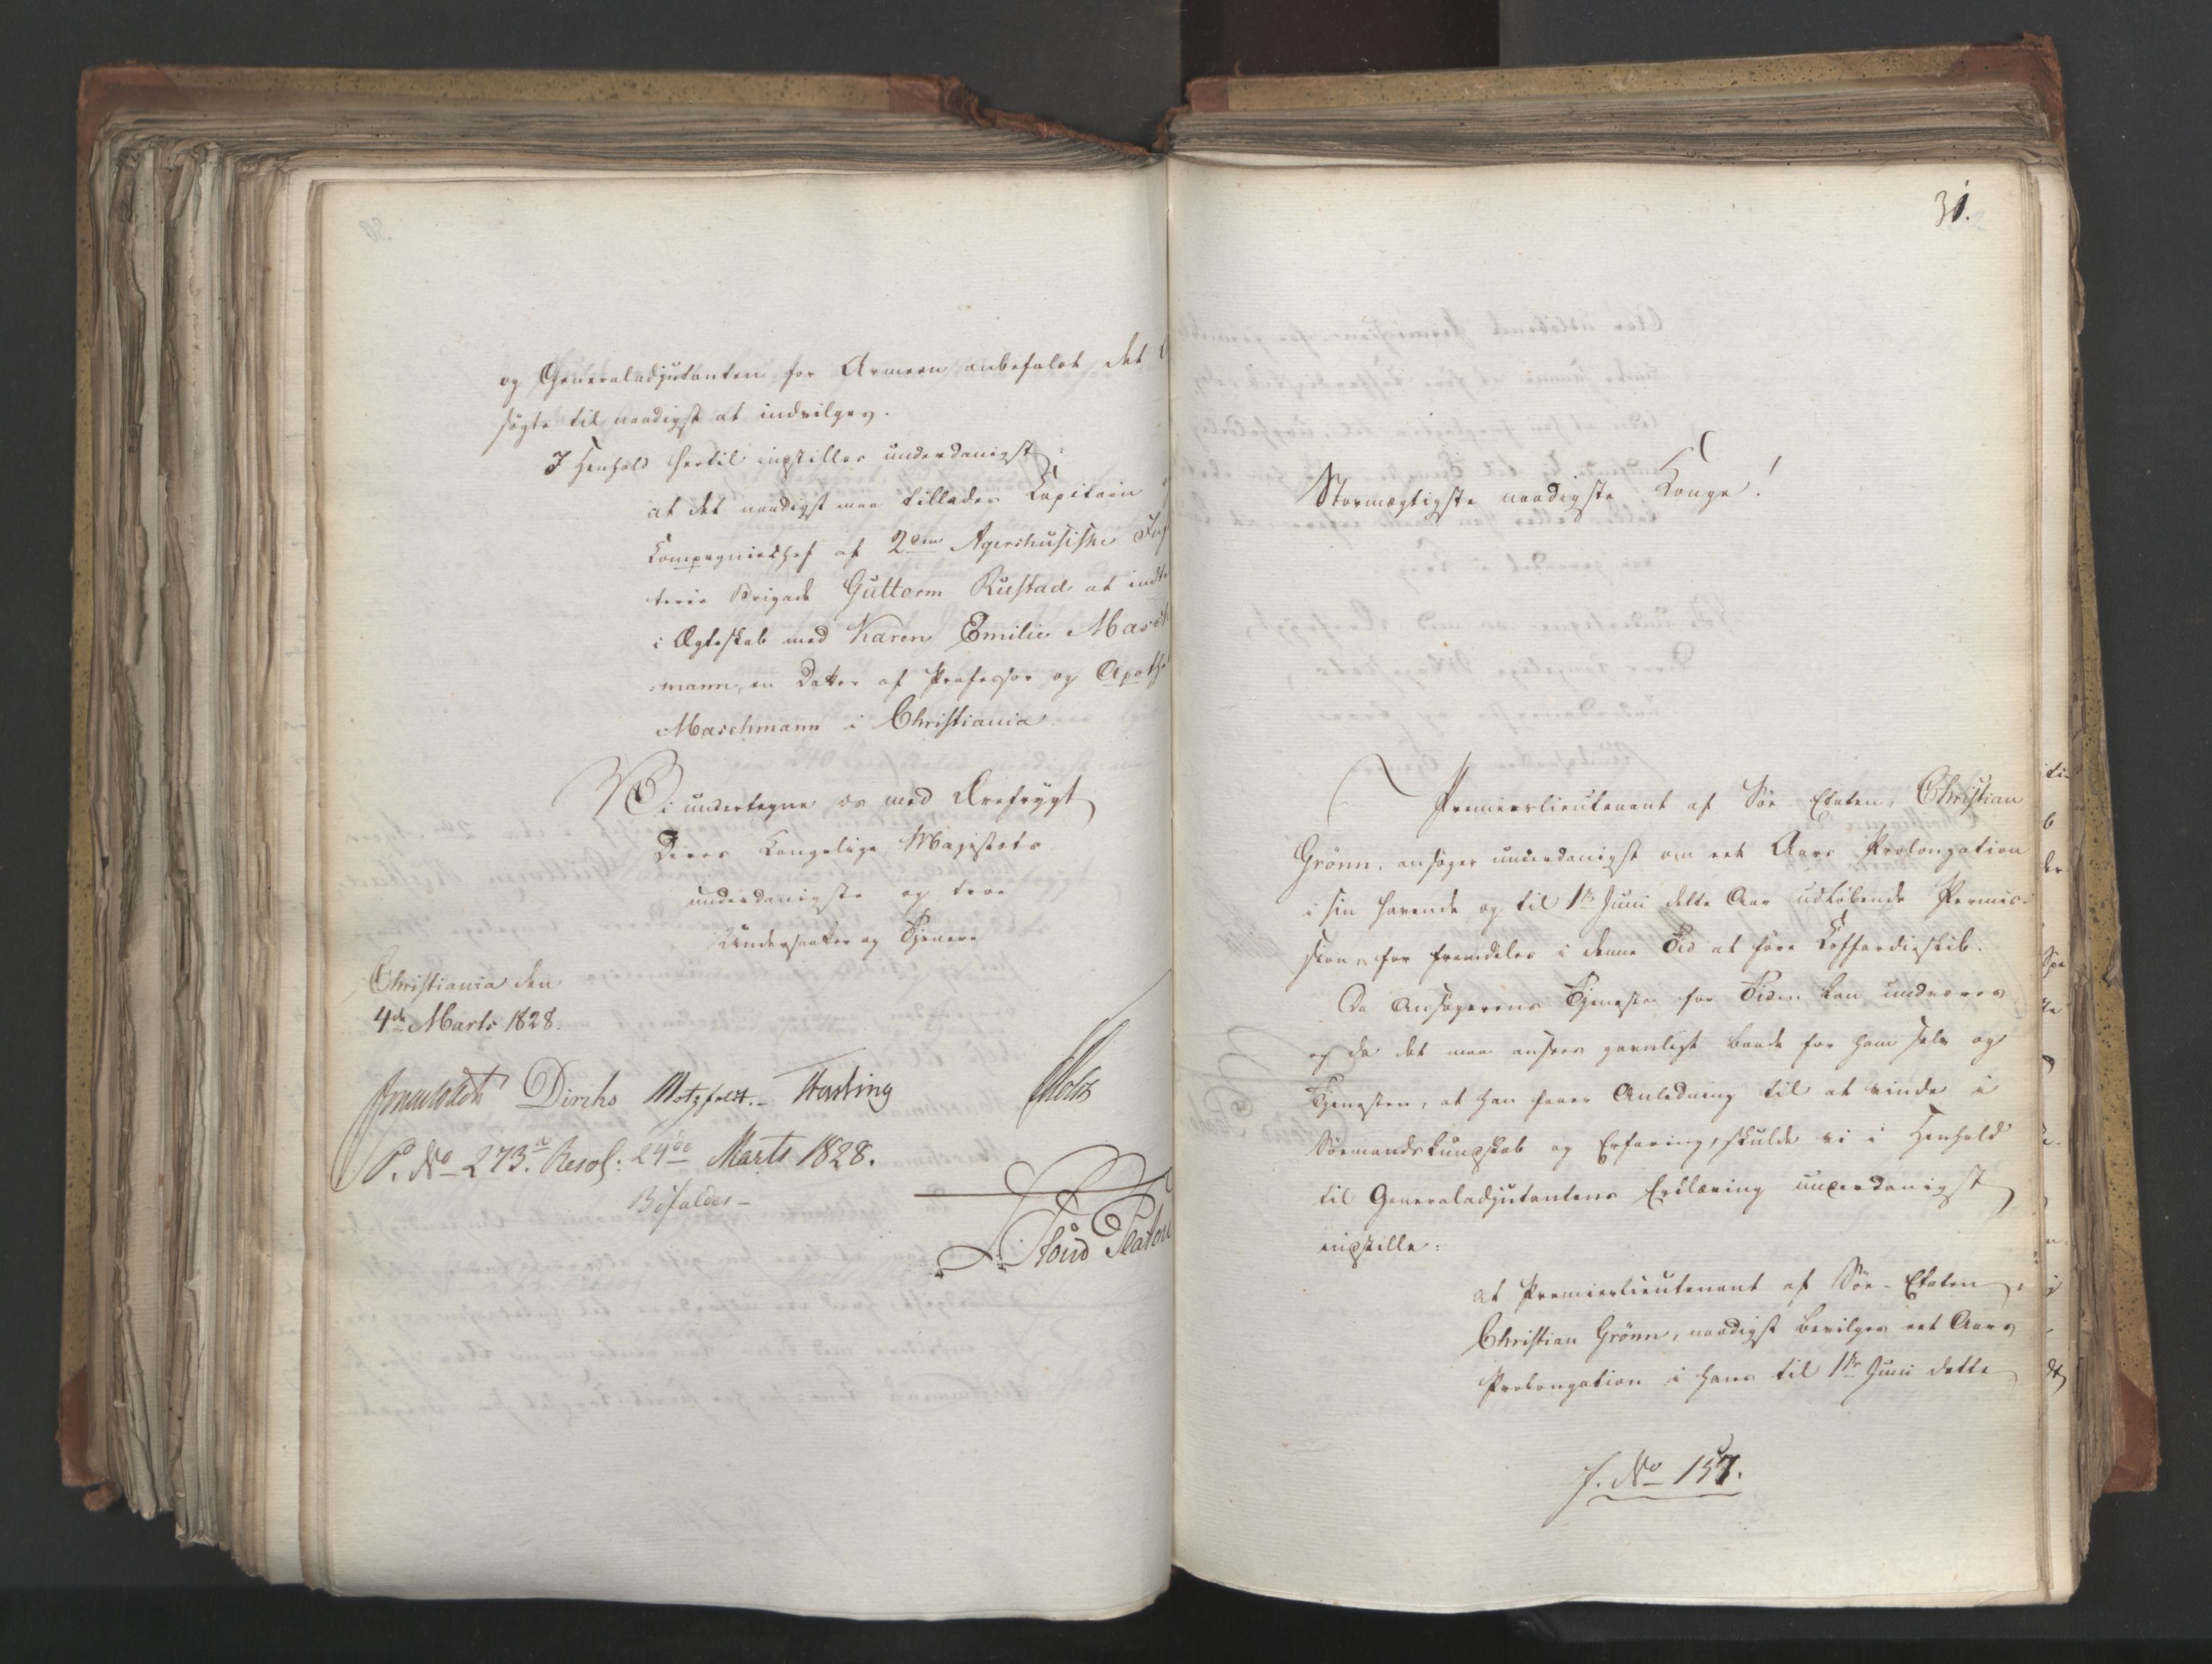 og Generaladjutanten for Armeen anbefalet det
søgte til naadigst at indvilges.
I Henhold hertil indstilles underdanigst:
at det naadigst maa tillades Kapitain
Kompagniechef af 2den Agershusiske Inf
terie Brigade Guttorm Rustad at indt
i Ægteskab med Karen Emilie Masch
mann, en Datter af Professor og Apothe
Maschmann i Christiania
Vi undertegne os med Ærefrygt
Deres Kongelige Majestæts
underdanigste og troe
Undersaatter og Tjenere
Christiania den
4de Marts 1828.
Diriks Motzfeldt. Fasting Holst
P. No 273. a Resol: 24de Marts 1828.
Bifaldes-
31.
Stormægtigste naadigste Konge!
Premierlieutenant af Søe-Etaten, Christian
Grönn, ansøger underdanigst om eet Aars Prolongation
i sin havende og til 1ste Juni dette Aar udløbende Permis-
sion, for fremdeles i denne Tid at føre Koffardieskib.
Da Ansøgerens Tjeneste for Tiden kan undværes
og da det maa ansees gavnligt baade for ham selv og
Tjenesten, at han faaer Anledning til at vinde i
Søemandskundskab og Erfaring, skulde vi i Henhold
til Generaladjutantens Erklæring underdanigst
indstille:
at Premierlieutenant af Søe-Etaten,
Christian Grönn, naadigst bevilges eet Aars
Prolongation i hans til 1ste Juni dette
J. No 157.